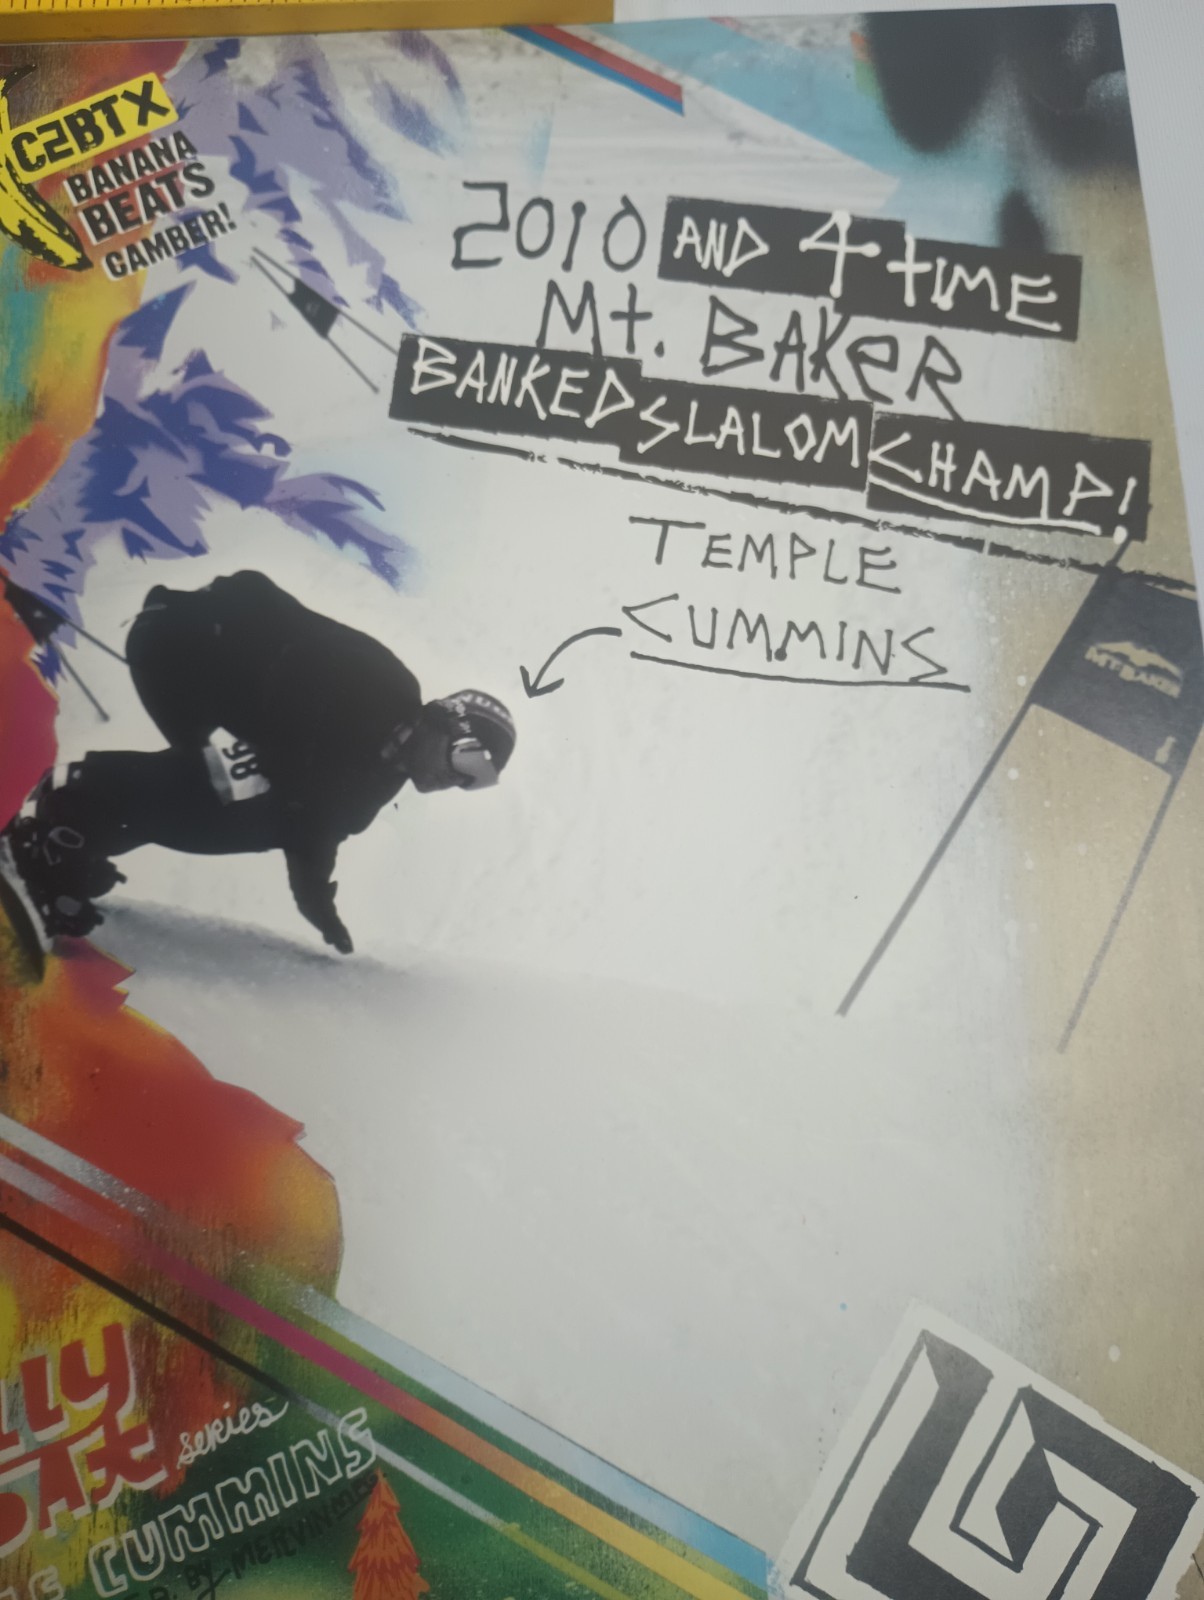 C2BTX
BANANA
BEATS
CAMBER!
2010 AND 4 TIME
Mt. BAKER
BANKED SLALOM CHAMP!
TEMPLE
CUMMINS
86
MT. BAKER
series
CUMMINS
BY MERVIN